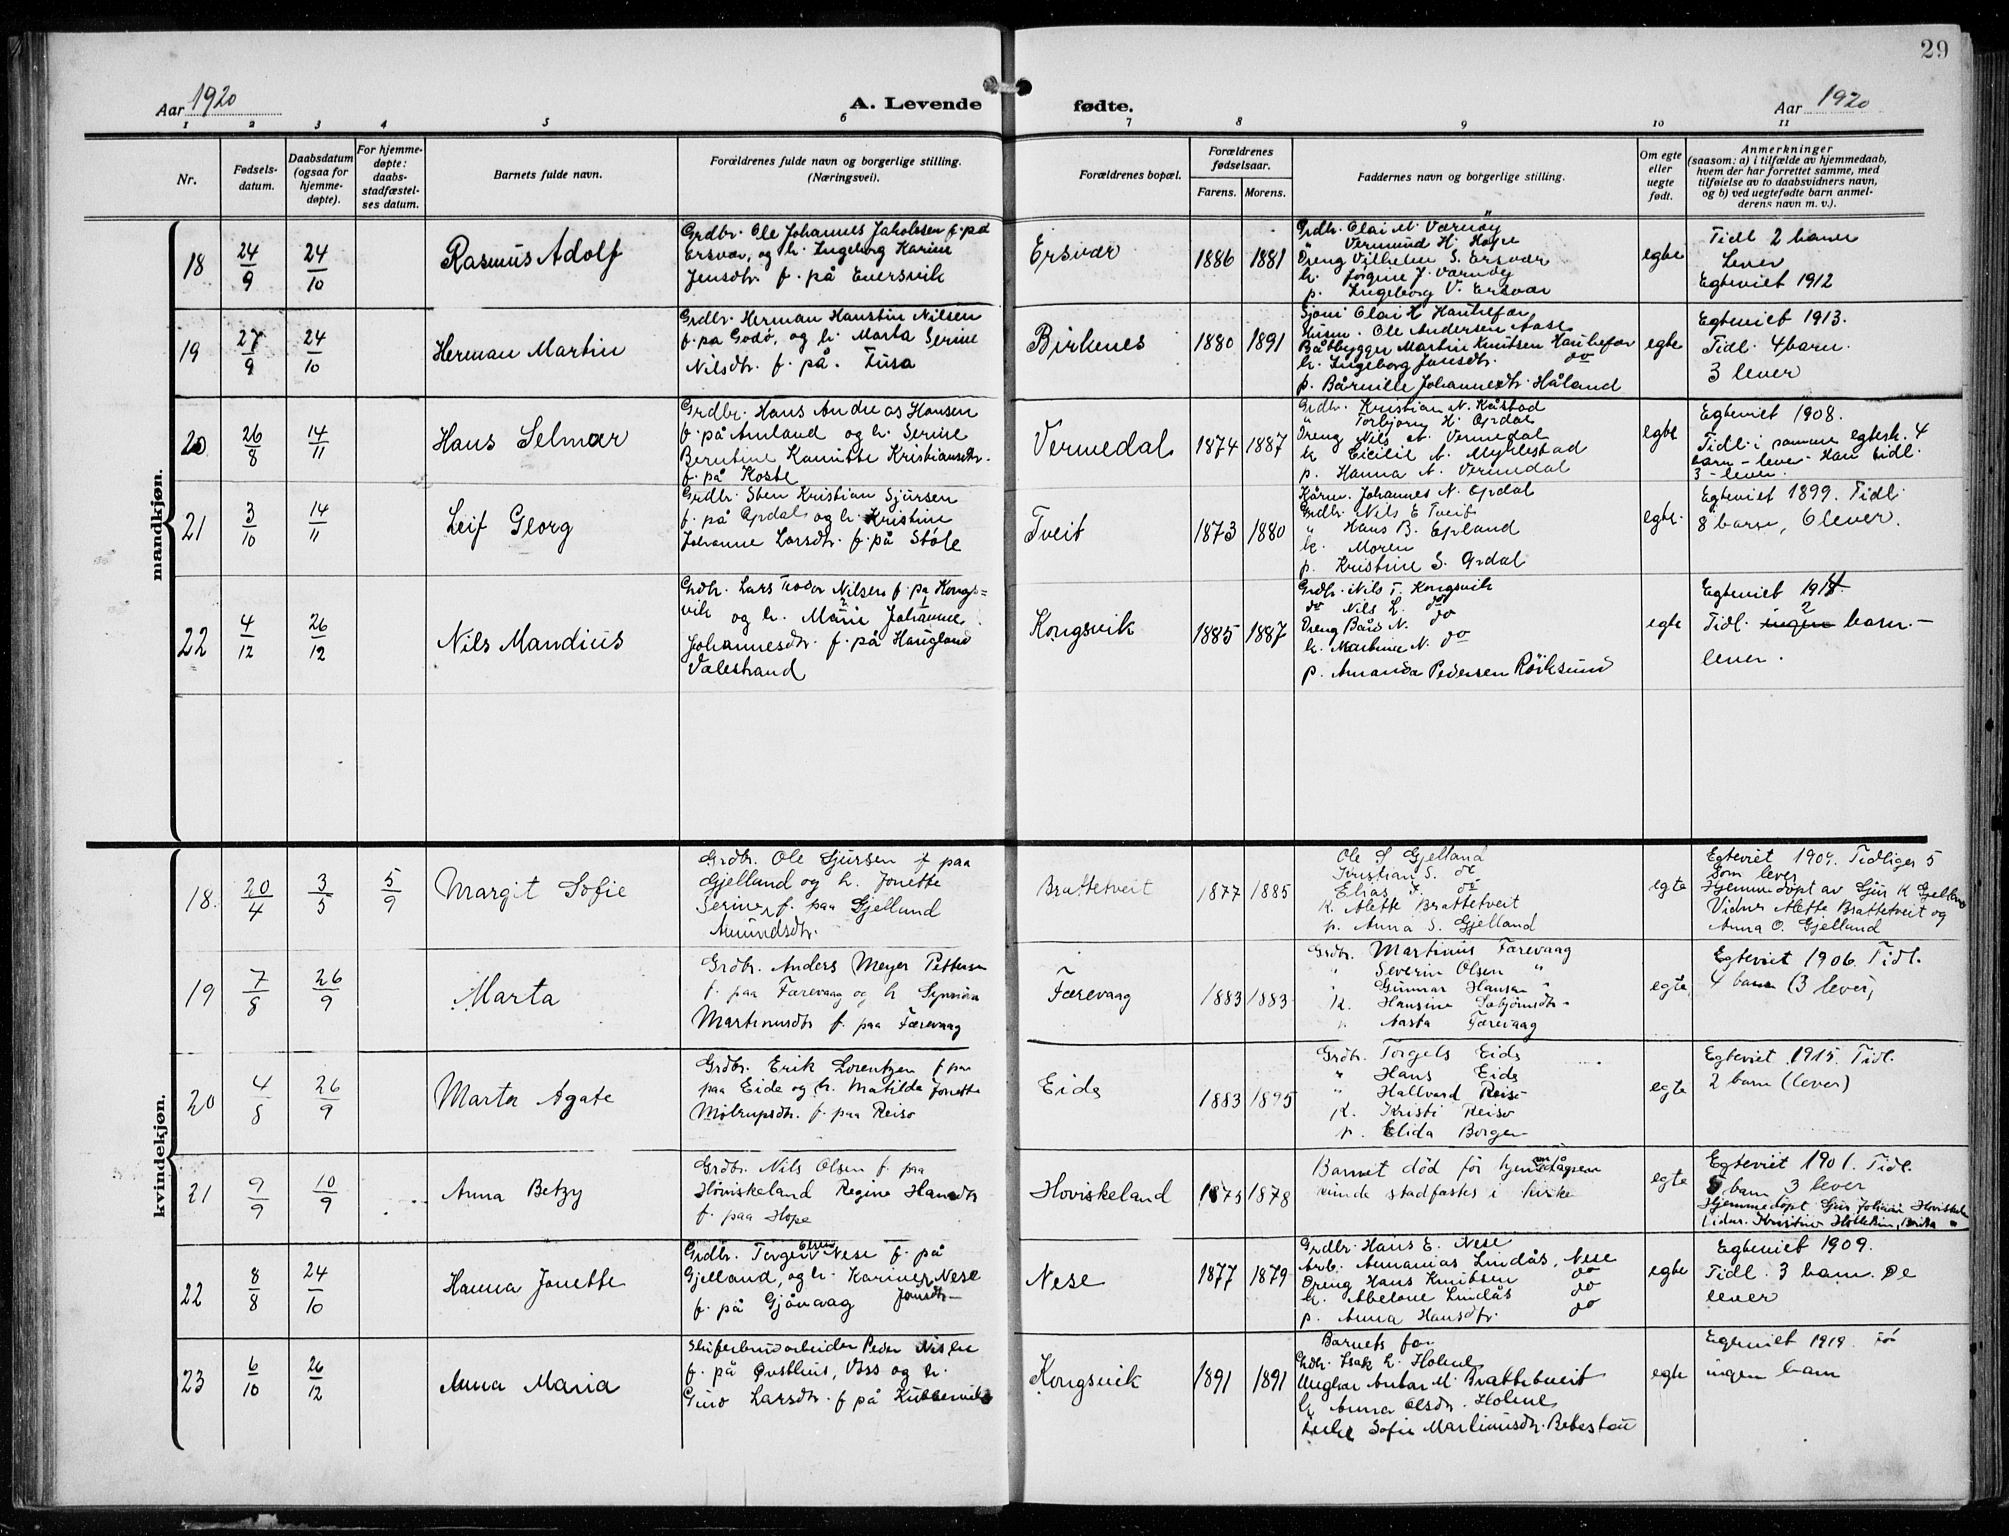 29
Aar 1920
A. Levende
fødte.
Aar 1920
1 2 3 4 5 6 7 8 9 10 11
Nr.
Fødsels-
datum.
Daabsdatum
(ogsaa for
hjemme-
døpte).
For hjemme-
døpte:
daabs-
stadfæstel-
ses datum.
Barnets fulde navn.
Forældrenes fulde navn og borgerlige stilling.
(Næringsvei).
Forældrenes bopæl.
Forældrenes
fødselsaar.
Farens. Morens.
Faddernes navn og borgerlige stilling.
Om egte
eller
uegte
født.
Anmerkninger
(saasom: a) i tilfælde av hjemmedaab,
hvem der har forrettet samme, med
tilføielse av to daabsvidners navn,
og b) ved uegtefødte barn anmel-
derens navn m. v.).
mandkjøn.
18
24/9
24/10
Rasmus Adolf
Grdbr. Ole Johannes Jakobsen f. på
Ersvær, og h. Ingeborg Karine
Jensdtr. f. på Euersvik
Ersvær
1886 1881
Grdbr. Olai N. Værnøy
" Vermund H. Hope
Dreng Vilhelm S. Ersvær
k. Jørgine J. Værnøy
p. Ingeborg V. Ersvær
egte
Tidl 2 barn
Lever
Egteviet 1912
19
27/9
24/10
Herman Martin
Grdbr. Herman Haustin Nilsen
f. på Godø, og h. Marta Serine
Nilsdtr. f. på. Fusa
Birkenes
1880 1891
Olai H
Husm. Ole Andersen Aase
Båtbygger Martin Knutsen
k. Ingeborg Jonsdtr. do
p. Håland
egte
Egteviet 1913.
Tidl. 4 barn.
3 lever
20
26/8
14/11
Hans Selmer
Grdbr. Hans Andreas Hansen
f. på Amland og h. Serine
Berntine Kristiansdtr.
f. på Koste
Vermedal
1874 1887
Grdbr. Kristian N.
" Torbjørn H. Opdal
Dreng Nils A. Vermedal
k Cicilie N. Myklestad
p. Hanna A. Vermedal
egte
Egteviet 1908.
Tidl. i samme egtesk. 4
barn - lever - Han tidl.
3 - lever.
21
3/10
14/11
Leif Georg
Grdbr. Sten Kristian Sjursen
f. på Opdal og h. Kristine
Johanne Larsdtr. f. på Støle
Tveit
1873 1880
Kårm. Johannes N. Opdal
Grdbr. Nils E Tveit
" Hans B. Epland
k. Moren
p. Kristine S. Opdal
egte.
Egteviet 1899. Tidl.
8 barn, 6 lever.
22
4/12
26/12
Nils Mandius
Grdbr. Lars Teodor Nilsen f. på Kongs=
vik og h. Marie Johanne
Johannesdtr. f. på Haugland
Valestrand
Kongsvik
1885 1887
Grdbr. Nils T. Kongsvik
do Nils L. do
Dreng Bård N. do
k. Martine N. do
p. Amanda Pedersen Røiksund
egte
Egteviet 1914.
2
Tidl. ingen barn. -
lever.
kvindekjøn.
18.
20/4
3/5
5/9
Margit Sofie
Grdbr. Ole Sjursen f paa
Gjelland og h. Jonette
Serine, f. paa Gjelland
Amundsdtr.
Brattetveit
1877 1885
Ole S Gjelland
Kristian S. do
Elias J. do
k. Alette Brattetveit
p. Anna S. Gjelland
egte
Egteviet 1909. Tidligere 5
som lever
Hjemmedøpt av Sjur K Gjelland
Vidner Alette Brattetveit og
Anna O. Gjelland
19
7/8
26/9
Marta
Grdbr. Anders Meyer Pettersen
f. paa Færevaag og h Synnøva
Martinusdtr f. paa Færevaag
Færevaag
1883 1883
Grdbr. Martinus Færevaag
" Severin Olsen "
" Gunnar Hansen "
k. Hansine Sæbjørnsdtr "
p. Aasta Færevaag
egte
Egteviet 1906. Tidl.
4 barn (3 lever)
20
4/8
26/9
Marta Agate
Grdbr. Erik Lorentzen f paa
paa Eide og h. Matilda Jonette
Moltrupsdtr. f. paa Reisø
Eide
1883 1895
Grdbr. Torgels Eide
" Hans Eide
" Hallvard Reisø
k. Kristi Reisø
p. Elida Borgen
egte
Egteviet 1915. Tidl.
2 barn (lever)
21
9/9
10/9
Anna Betzy
Grdbr. Nils Olsen f. paa
Hoviskeland Regine Hansdtr
f. paa Hope
Hoviskeland
1875 1878
Barnet død før hjemmedåpen
kunde stadfæstes i kirke
egte
Egteviet 1901. Tidl.
5 barn 3 lever
Hjemmedøpt Johan Hoviskel.
22
8/8
24/10
Hanna Jonette
Olsen
Grdbr. Torger Nese f. på
Gjelland, og h. Karine Nese
f. på Gjøvaag Jonsdtr
Nese
1877 1879
Grdbr. Hans E. Nese
Arb. Ananias Lindås, Nese
Dreng Hans Knutsen do
k. Abelone Lindås do
p. Anna Hansdtr. do
egte
Egteviet 1909.
Tidl. 3 barn. De
lever
23
6/10
26/12
Anna Maria
Skiferbrudarbeider Peder Nilsen
f. på Gusthus, Voss og h.
Guro Larsdtr. f på
Kongsvik
1891 1891
Barnets far
Grdbr. Isak L. Holme
Ungkar Anton M. Brattetveit
k Anna Olsdtr. Holme
Sofie Martinusdtr.
egte
Egteviet 1919. Før
ingen barn